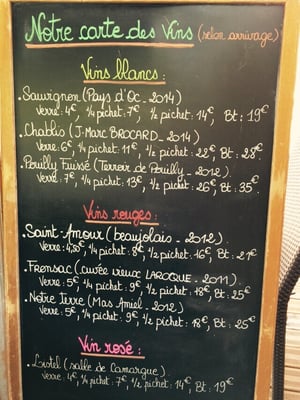 Notre carte des Vins (selon arrivage)
Vins blancs :
. Sauvignon (Pays d'Oc - 2014)
Verre : 4€, 1/4 pichet : 7€, 1/2 pichet : 14€, Bt : 19€
. Chablis (J-Marc BROCARD - 2014)
Verre : 6€, 1/4 pichet : 11€, 1/2 pichet : 22€, Bt : 28€
. Pouilly Fuissé (Terroir de Pouilly - 2012)
Verre : 7€, 1/4 pichet : 13€, 1/2 pichet : 26€, Bt : 35€
Vins rouges :
. Saint Amour (beaujolais - 2012)
Verre : 4,50€, 1/4 pichet : 8€, 1/2 pichet : 16€, Bt : 21€
. Fronsac (cuvée vieux LAROQUE - 2011)
Verre : 5€, 1/4 pichet : 9€, 1/2 pichet : 18€, Bt : 25€
. Notre Terre (Mas Amiel - 2012)
Verre : 5€, 1/4 pichet : 9€, 1/2 pichet : 18€, Bt : 25€
Vin rosé :
. Listel (salle de Camargue)
Verre : 4€, 1/4 pichet : 7€, 1/2 pichet : 14€, Bt : 19€